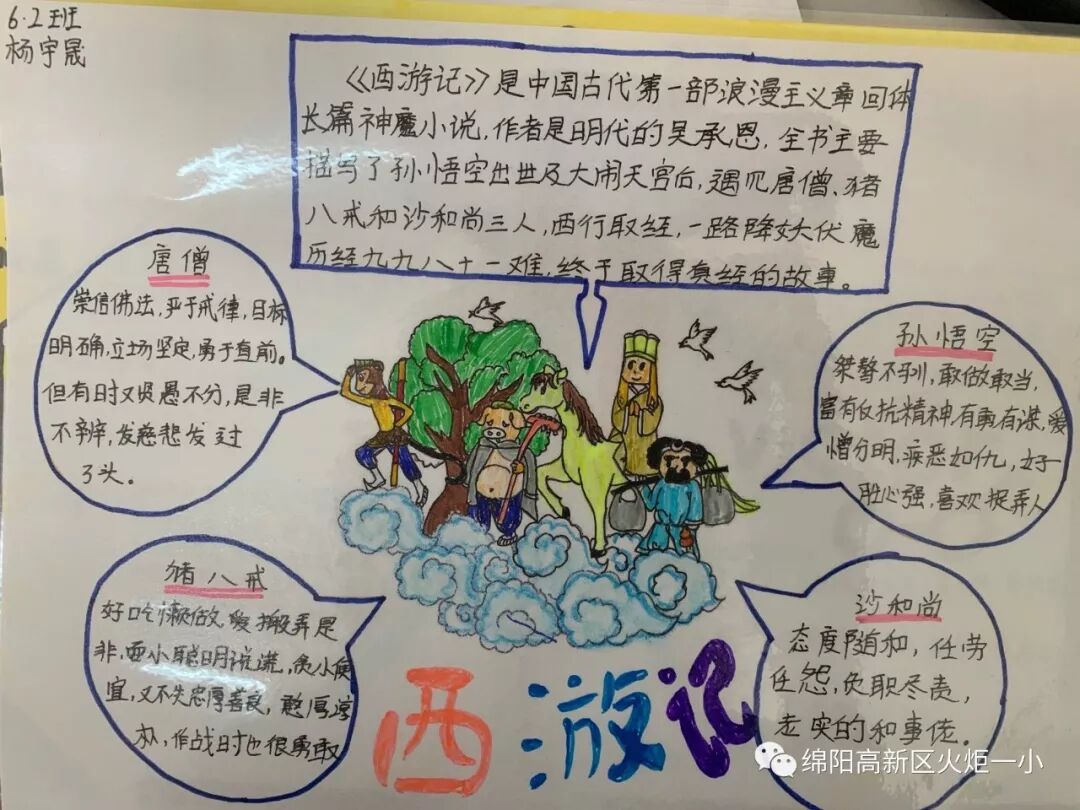 6.2班
杨宇晟
《西游记》是中国古代第一部浪漫主义章回体
长篇神魔小说，作者是明代的吴承恩，全书主要
描写了孙悟空出世及大闹天宫后，遇见唐僧、猪
八戒和沙和尚三人，西行取经，一路降妖伏魔
历经九九八十一难，终于取得真经的故事。
唐僧
崇信佛法，严于戒律，目标
明确，立场坚定，勇于直前。
但有时又贤愚不分，是非
不辨，发慈悲发过
了头。
孙悟空
桀骜不驯，敢做敢当，
富有反抗精神，有勇有谋，爱
憎分明，疾恶如仇，好
胜心强，喜欢捉弄人
猪八戒
好吃懒做，爱搬弄是
非，耍小聪明说谎，贪小便
宜，又不失忠厚善良，憨厚淳
朴，作战时也很勇敢
沙和尚
态度随和，任劳
任怨，负职尽责，
老实的和事佬。
西游记
绵阳高新区火炬一小